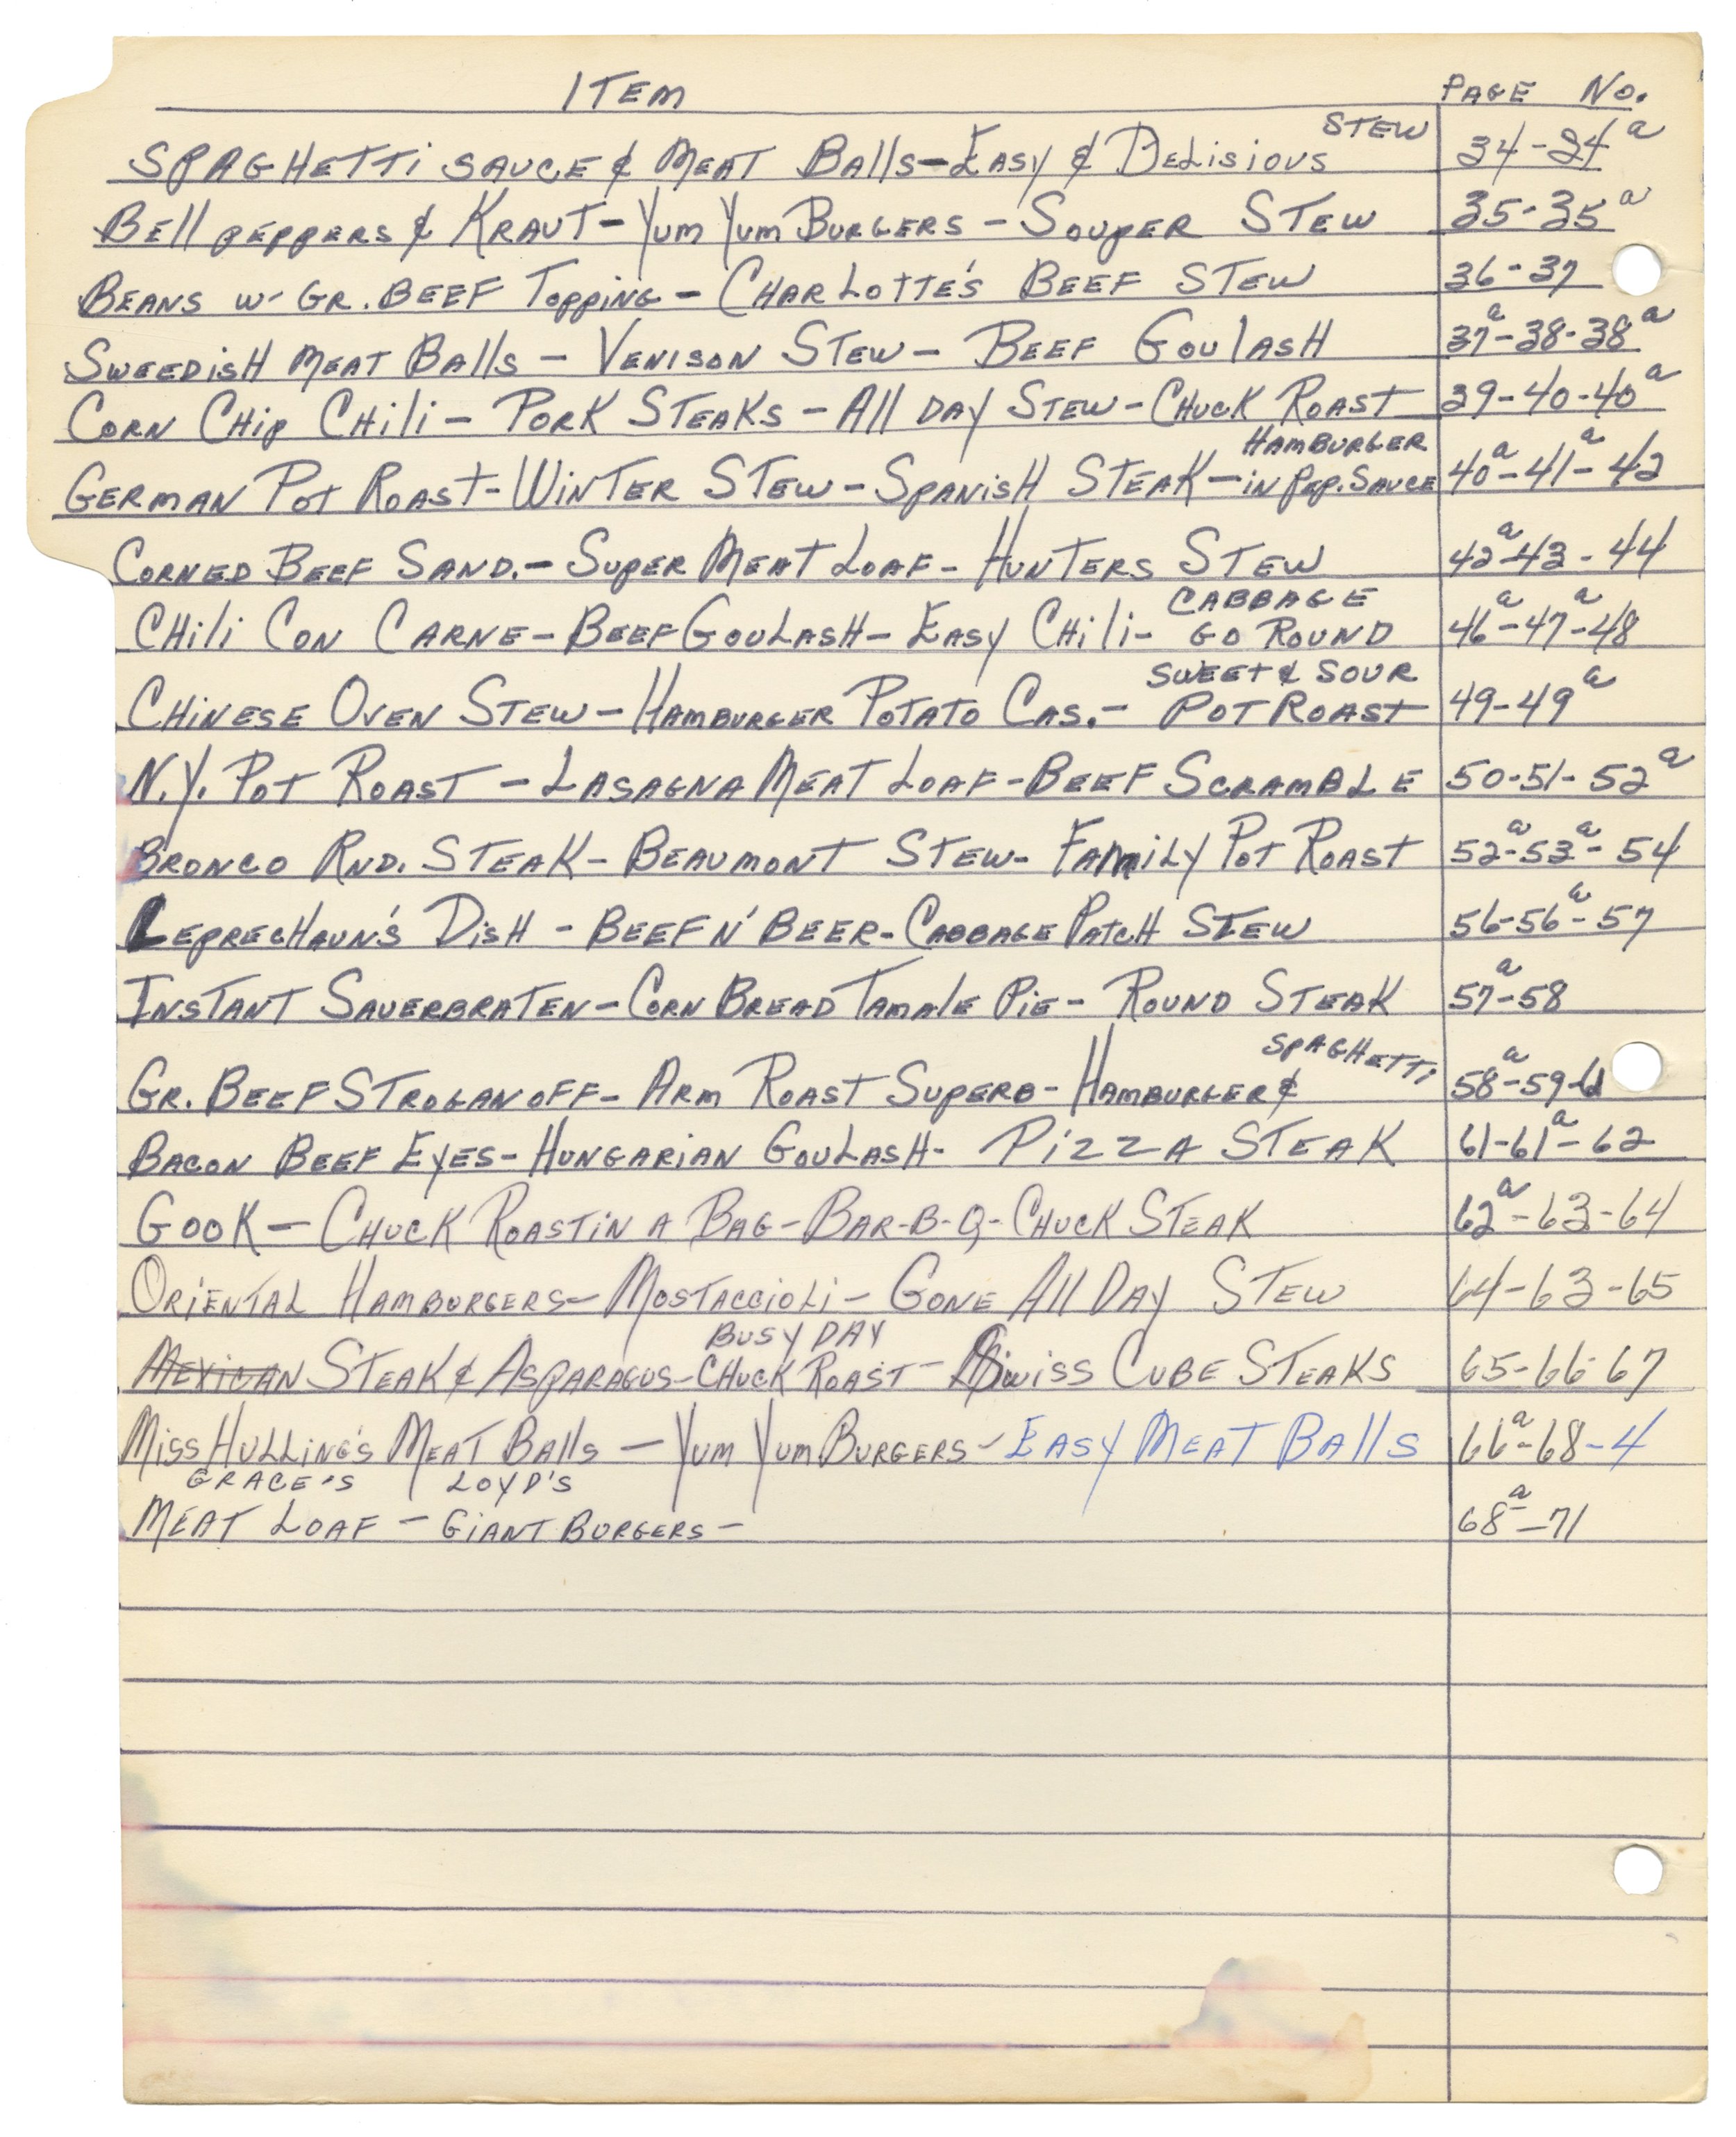 ITEM PAGE No.
STEW
SPAGHETTi SAUCE & MEAT BAlls-EASY & DELisiOUS 34-34a
BEll pEPPERS & KRAUT-YUM YUM BURGERS - SOUPER STEW 35-35a
BEANS W- GR. BEEF TOPPING - CHARLOTTE'S BEEF STEW 36-37
SWEEDISH MEAT BAlls - VENISON STEW - BEEF GOULASH 37a-38-38a
CORN CHIP CHILI - PORK STEAKS - All DAY STEW - CHUCK ROAST 39-40-40a
HAMBURGER
GERMAN POT ROAST-WINTER STEW-SPANISH STEAK-IN Pep. SAUCE 40a-41a-42
CORNED BEEF SAND.-SUPER MEAT LOAF-HUNTERS STEW 42a-43-44
CABBAGE
CHILI CON CARNE-BEEF GOULASH-EASY CHILI- GO ROUND 46a-47a-48
SWEET & SOUR
CHINESE OVEN STEW-HAMBURGER POTATO CAS.- POT ROAST 49-49a
N.Y. POT ROAST - LASAGNA MEAT LOAF-BEEF SCRAMBLE 50-51-52a
BRONCO RND. STEAK-BEAUMONT STEW- FAMILY POT ROAST 52a-53a-54
LEPRECHAUN'S DISH - BEEF N' BEER-CABBAGE PATCH STEW 56-56a-57
INSTANT SAUERBRATEN-CORN BREAD TAMALE PIE- ROUND STEAK 57a-58
SPAGHETTi
GR. BEEF STROGANOFF- ARM ROAST SUPERB-HAMBURGER & 58a-59-6
BACON BEEF EYES-HUNGARIAN GOULASH- PIZZA STEAK 61-61a-62
GOOK - CHUCK ROAST IN A BAG-BAR-B-Q-CHUCK STEAK 62a-63-64
ORIENTAL HAMBURGERS-MOSTACCIOLI-GONE All DAY STEW 64-63-65
BUSY DAY
MEXICAN STEAK & ASPARAGUS-CHUCK ROAST-SWISS CUBE STEAKS 65-66-67
MISS HULLING'S MEAT BAlls - YUM YUM BURGERS-EASY MEAT BAlls 66a-68-4
GRACE'S LOYD'S
MEAT LOAF - GIANT BURGERS - 68a-71